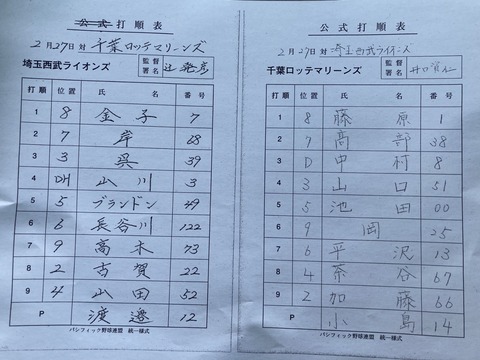 公式打順表
2月27日 対 千葉ロッテマリーンズ
埼玉西武ライオンズ 監督署名 辻発彦
打順 位置 氏名 番号
1 8 金子 7
2 7 岸 68
3 3 呉 39
4 DH 山川 3
5 5 ブランドン 49
6 6 長谷川 122
7 9 高木 73
8 2 古賀 22
9 4 山田 52
P 渡邉 12
パシフィック野球連盟 統一様式
公式打順表
2月27日 対 埼玉西武ライオンズ
千葉ロッテマリーンズ 監督署名 井口資仁
打順 位置 氏名 番号
1 8 藤原 1
2 7 高部 38
3 D 中村 8
4 3 山口 51
5 5 池田 00
6 9 岡 25
7 6 平沢 13
8 4 茶谷 67
9 2 加藤 66
P 小島 14
パシフィック野球連盟 統一様式